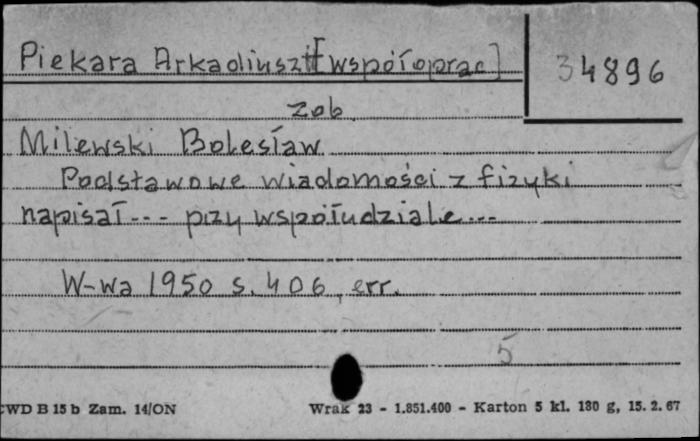 Piekara Arkadiusz [współoprac]
34896
zob
Milewski Bolesław
Podstawowe wiadomości z fizyki
napisał--- przy współudziale...
W-wa 1950 s. 406, err.
5
CWD B 15 b Zam. 14/ON Wrak 23 - 1.851.400 - Karton 5 kl. 180 g, 15. 2. 67